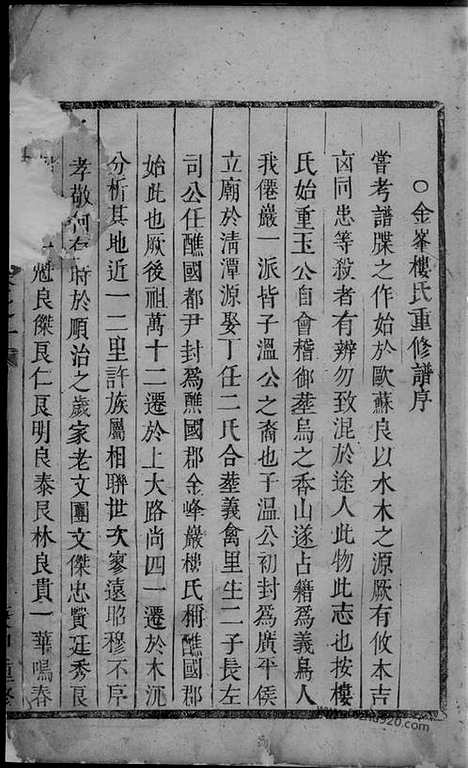 ○金峯樓氏重修譜序
嘗考譜牒之作始於歐蘇良以水木之源厥有攸本吉
凶同患等殺者有辨勿致混於途人此物此志也按樓
氏始重玉公自會稽御葬烏之香山遂占籍爲義烏人
我僊巖一派皆子溫公之裔也子溫公初封爲廣平侯
立廟於淸潭源娶丁任二氏合葬義禽里生二子長左
司公任醮國都尹封爲醮國郡金峰巖樓氏稱醮國郡
始此也厥後祖萬十二遷於上大路尚四一遷於木沉
分析其地近一二里許族屬相聯世次寥遠昭穆不序
孝敬何有時於順治之歲家老文團文傑忠賢廷秀良
魁良傑良仁良明良泰良林良貴一華鳴春
重修